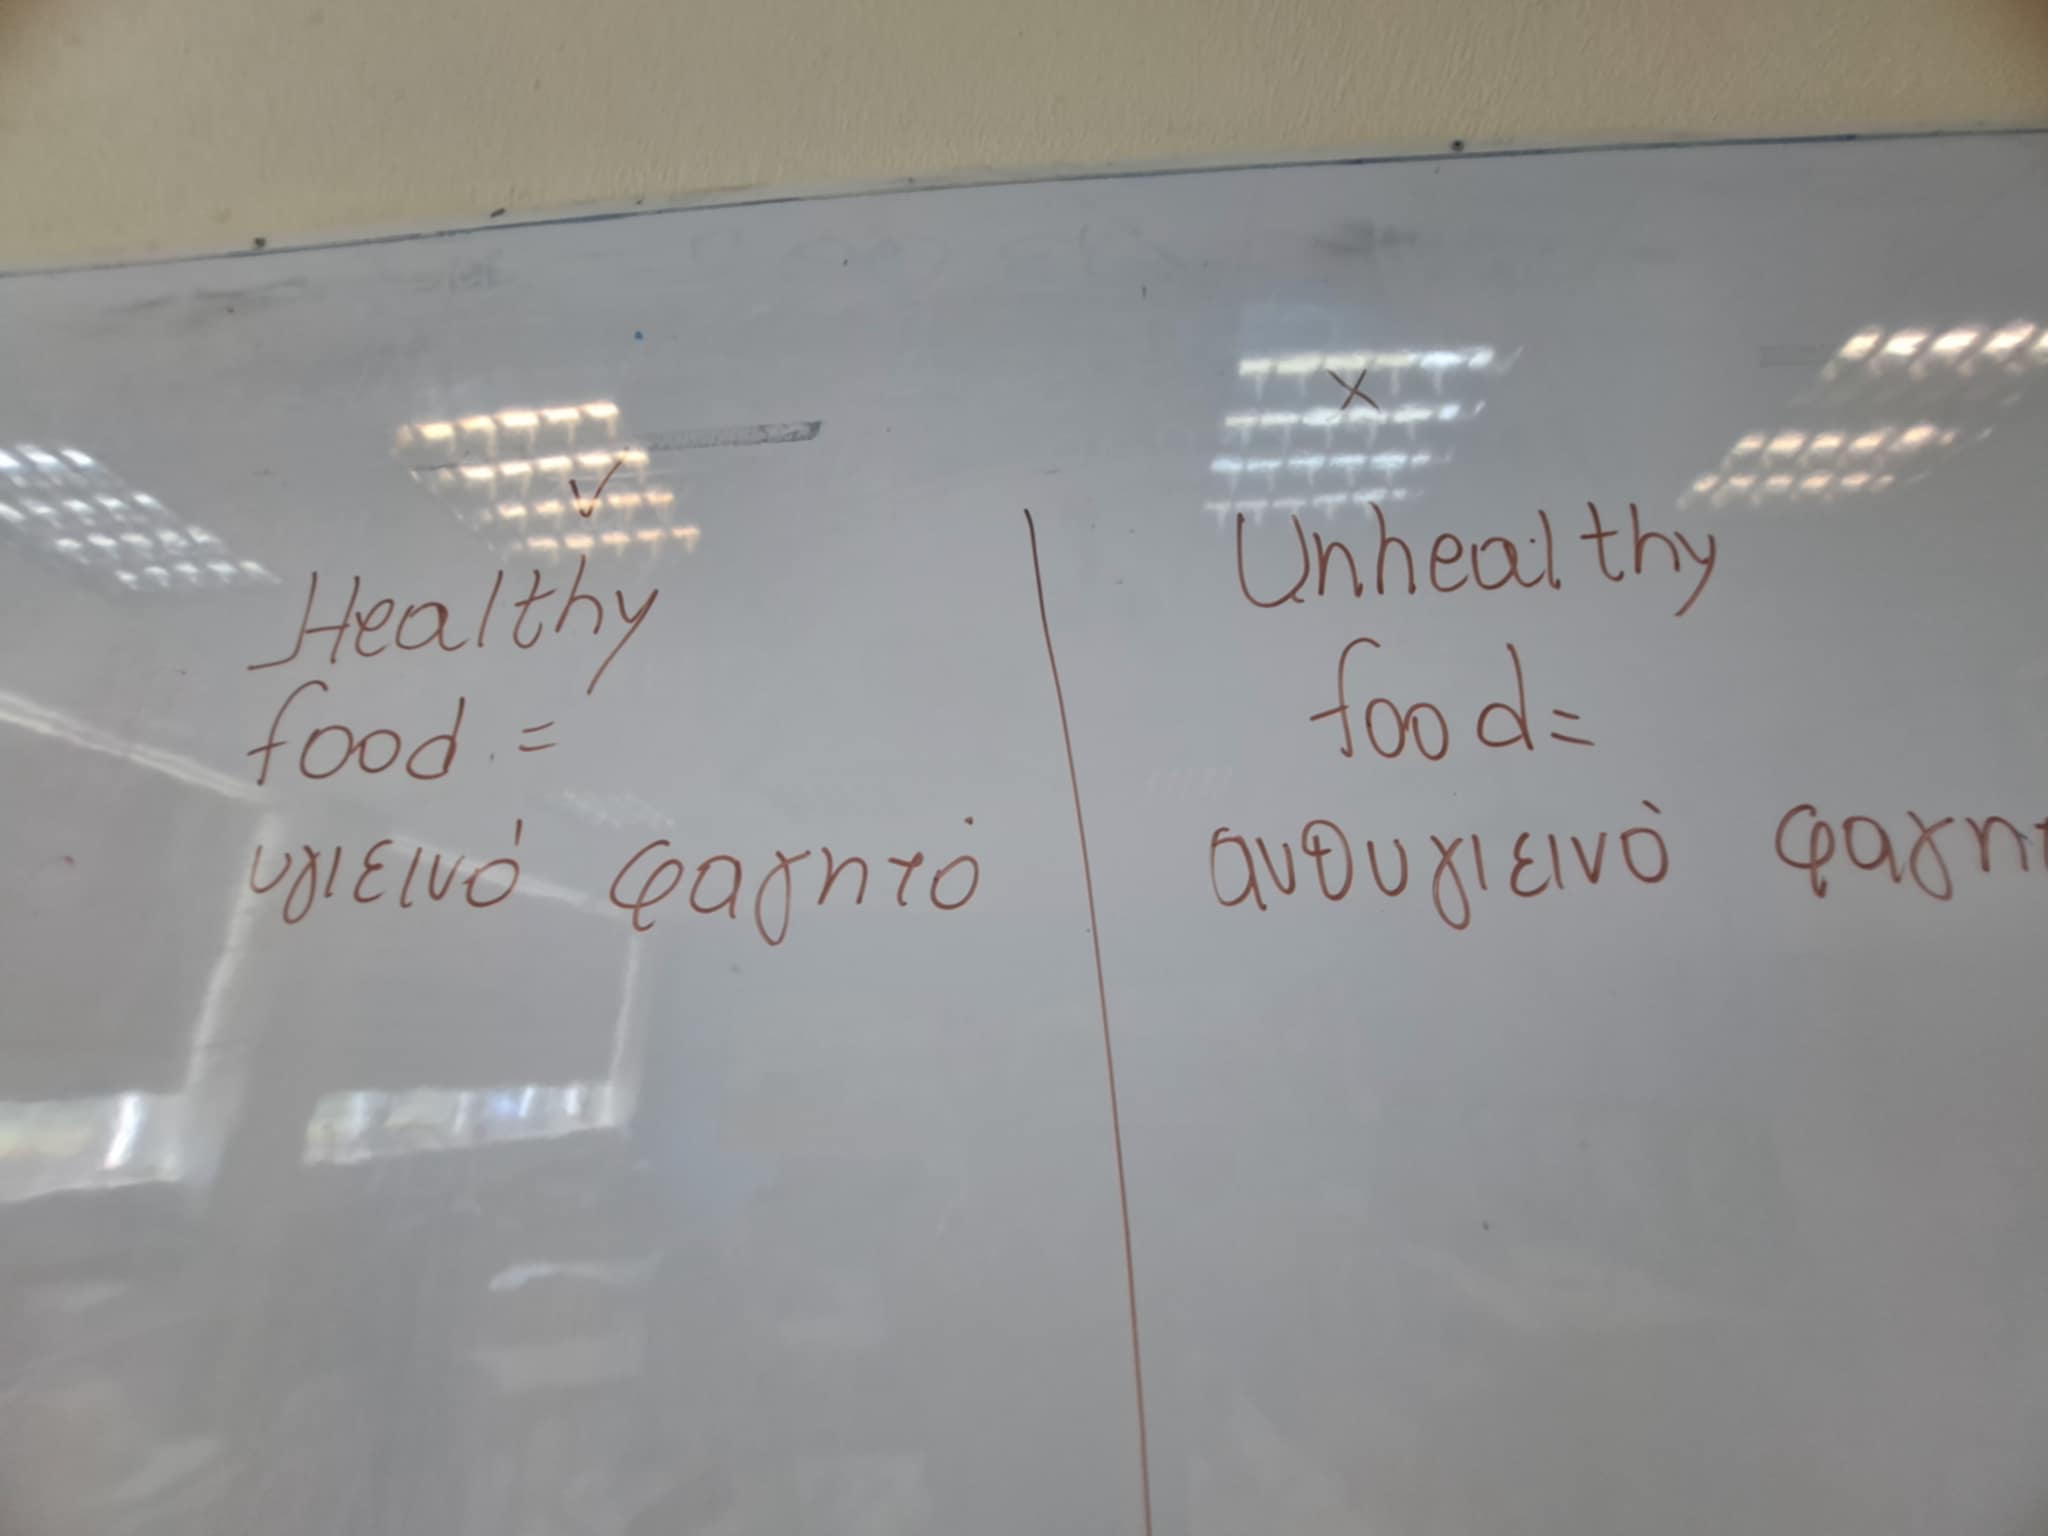 ✓
Healthy
food =
υγιεινό φαγητό
X
Unhealthy
food=
ανθυγιεινό φαγητ